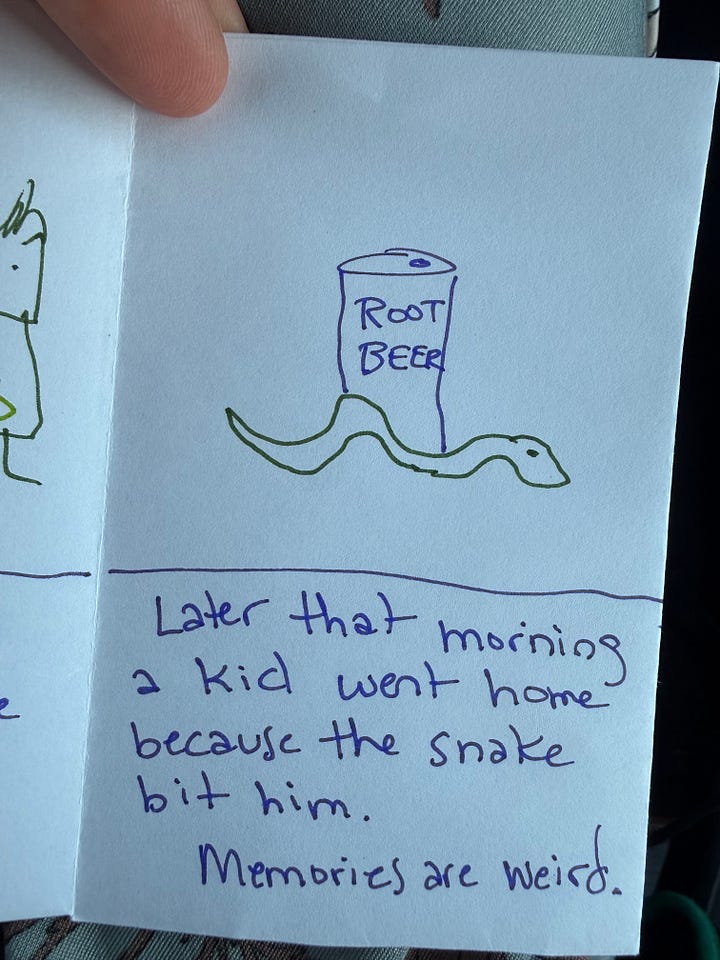 ROOT
BEER
Later that morning
a kid went home
because the snake
bit him.
Memories are weird.